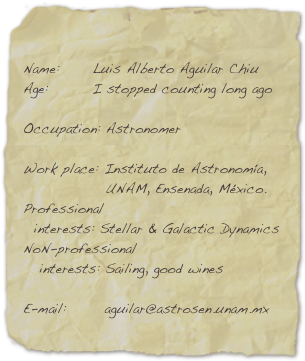 Name: Luis Alberto Aguilar Chiu
Age: I stopped counting long ago
Occupation: Astronomer
Work place: Instituto de Astronomía,
UNAM, Ensenada, México.
Professional
interests: Stellar & Galactic Dynamics
NoN-professional
interests: Sailing, good wines
E-mail: aguilar@astrosen.unam.mx